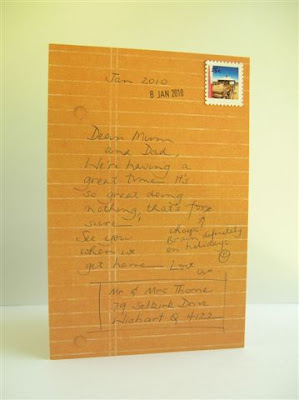 Jan 2010
8 JAN 2010
Dear Mum
and Dad,
We're having a
great time. It's
so great doing
nothing, that's for
sure —
See you
when we
get home — Love
us
Brain definitely
on holidays
Mr & Mrs Thorne
79 Selkirk Drive
Wishart Q 4122